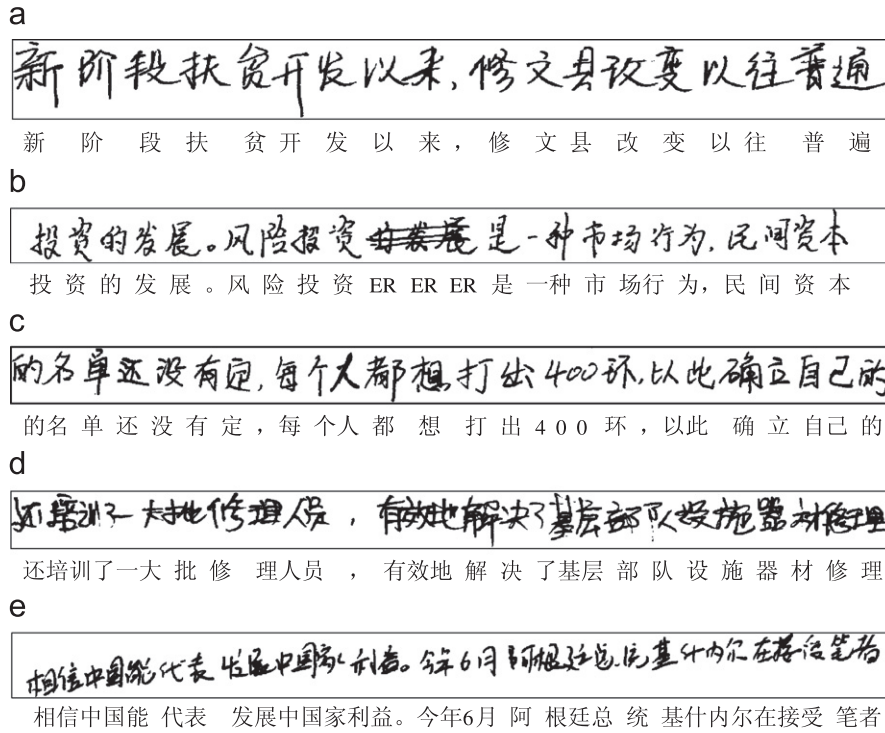 a
新阶段扶贫开发以来,修文县改变以往普通
新 阶 段 扶 贫 开 发 以 来 , 修 文 县 改 变 以 往 普 遍
b
投资的发展。风险投资是一种市场行为,民间资本
投 资 的 发 展 。风 险 投 资 ER ER ER 是 一种 市 场行 为, 民 间 资 本
c
的名单还没有定,每个人都想打出400环,以此确立自己的
的名 单 还 没 有 定 , 每 个人 都 想 打 出 4 0 0 环 , 以此 确 立 自己 的
d
还培训了一大批修理人员,有效地解决了基层部队设施器材修理
还培训了一大 批 修 理人员 , 有效地 解 决 了基层 部 队 设 施 器 材 修 理
e
相信中国能代表发展中国家利益。今年6月阿根廷总统基什内尔在接受笔者
相信中国能 代表 发展中国家利益。今年6月 阿 根廷总 统 基什内尔在接受 笔者